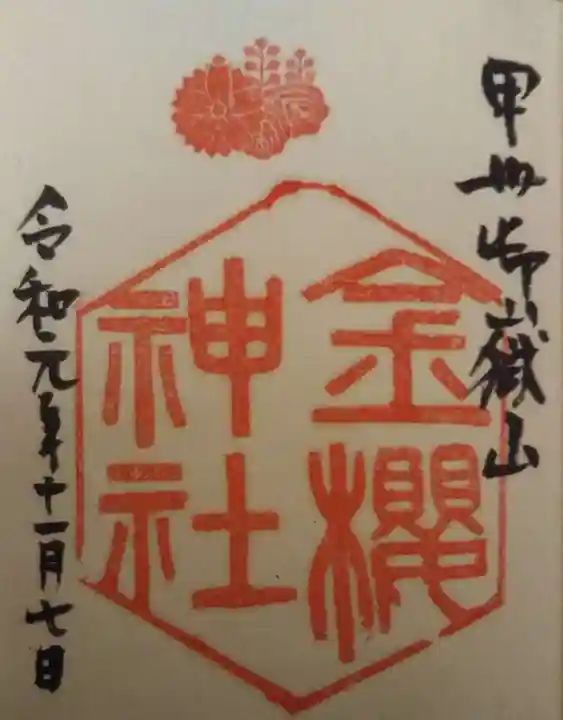 甲州御嶽山
金櫻
神社
令和元年十一月七日